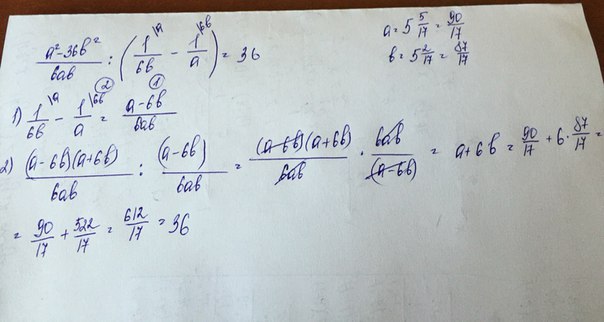 a²-36b²/6ab : (1\ᵃ/6b - 1\⁶ᵇ/a) = 36
a = 5 5/17 = 90/17
b = 5 2/17 = 87/17
② ①
1) 1\ᵃ/6b - 1\⁶ᵇ/a = a-6b/6ab
2) (a-6b)(a+6b)/6ab : (a-6b)/6ab = (a-6b)(a+6b)/6ab · 6ab/(a-6b) = a+6b = 90/17 + 6·87/17 =
= 90/17 + 522/17 = 612/17 = 36